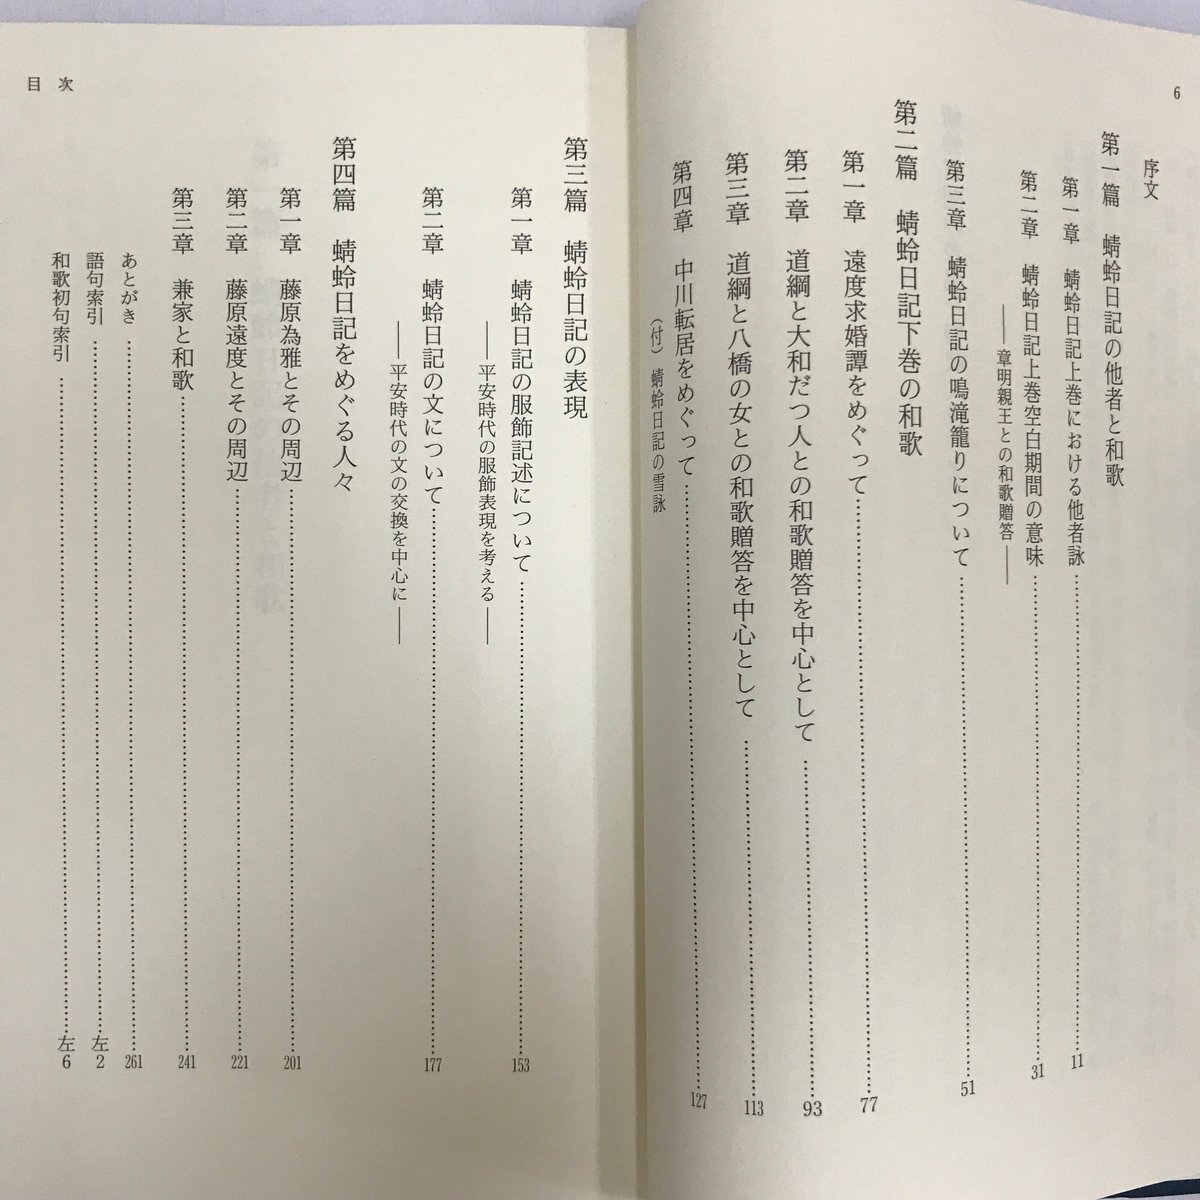 6
序文
第一篇　蜻蛉日記の他者と和歌
第一章　蜻蛉日記上巻における他者詠……11
第二章　蜻蛉日記上巻空白期間の意味……31
――章明親王との和歌贈答――
第三章　蜻蛉日記の鳴滝籠りについて……51
第二篇　蜻蛉日記下巻の和歌
第一章　遠度求婚譚をめぐって……77
第二章　道綱と大和だつ人との和歌贈答を中心として……93
第三章　道綱と八橋の女との和歌贈答を中心として……113
第四章　中川転居をめぐって……127
（付）蜻蛉日記の雪詠
第三篇　蜻蛉日記の表現
第一章　蜻蛉日記の服飾記述について……153
――平安時代の服飾表現を考える――
第二章　蜻蛉日記の文について……177
――平安時代の文の交換を中心に――
第四篇　蜻蛉日記をめぐる人々
第一章　藤原為雅とその周辺……201
第二章　藤原遠度とその周辺……221
第三章　兼家と和歌……241
あとがき……261
語句索引……左2
和歌初句索引……左6
目次